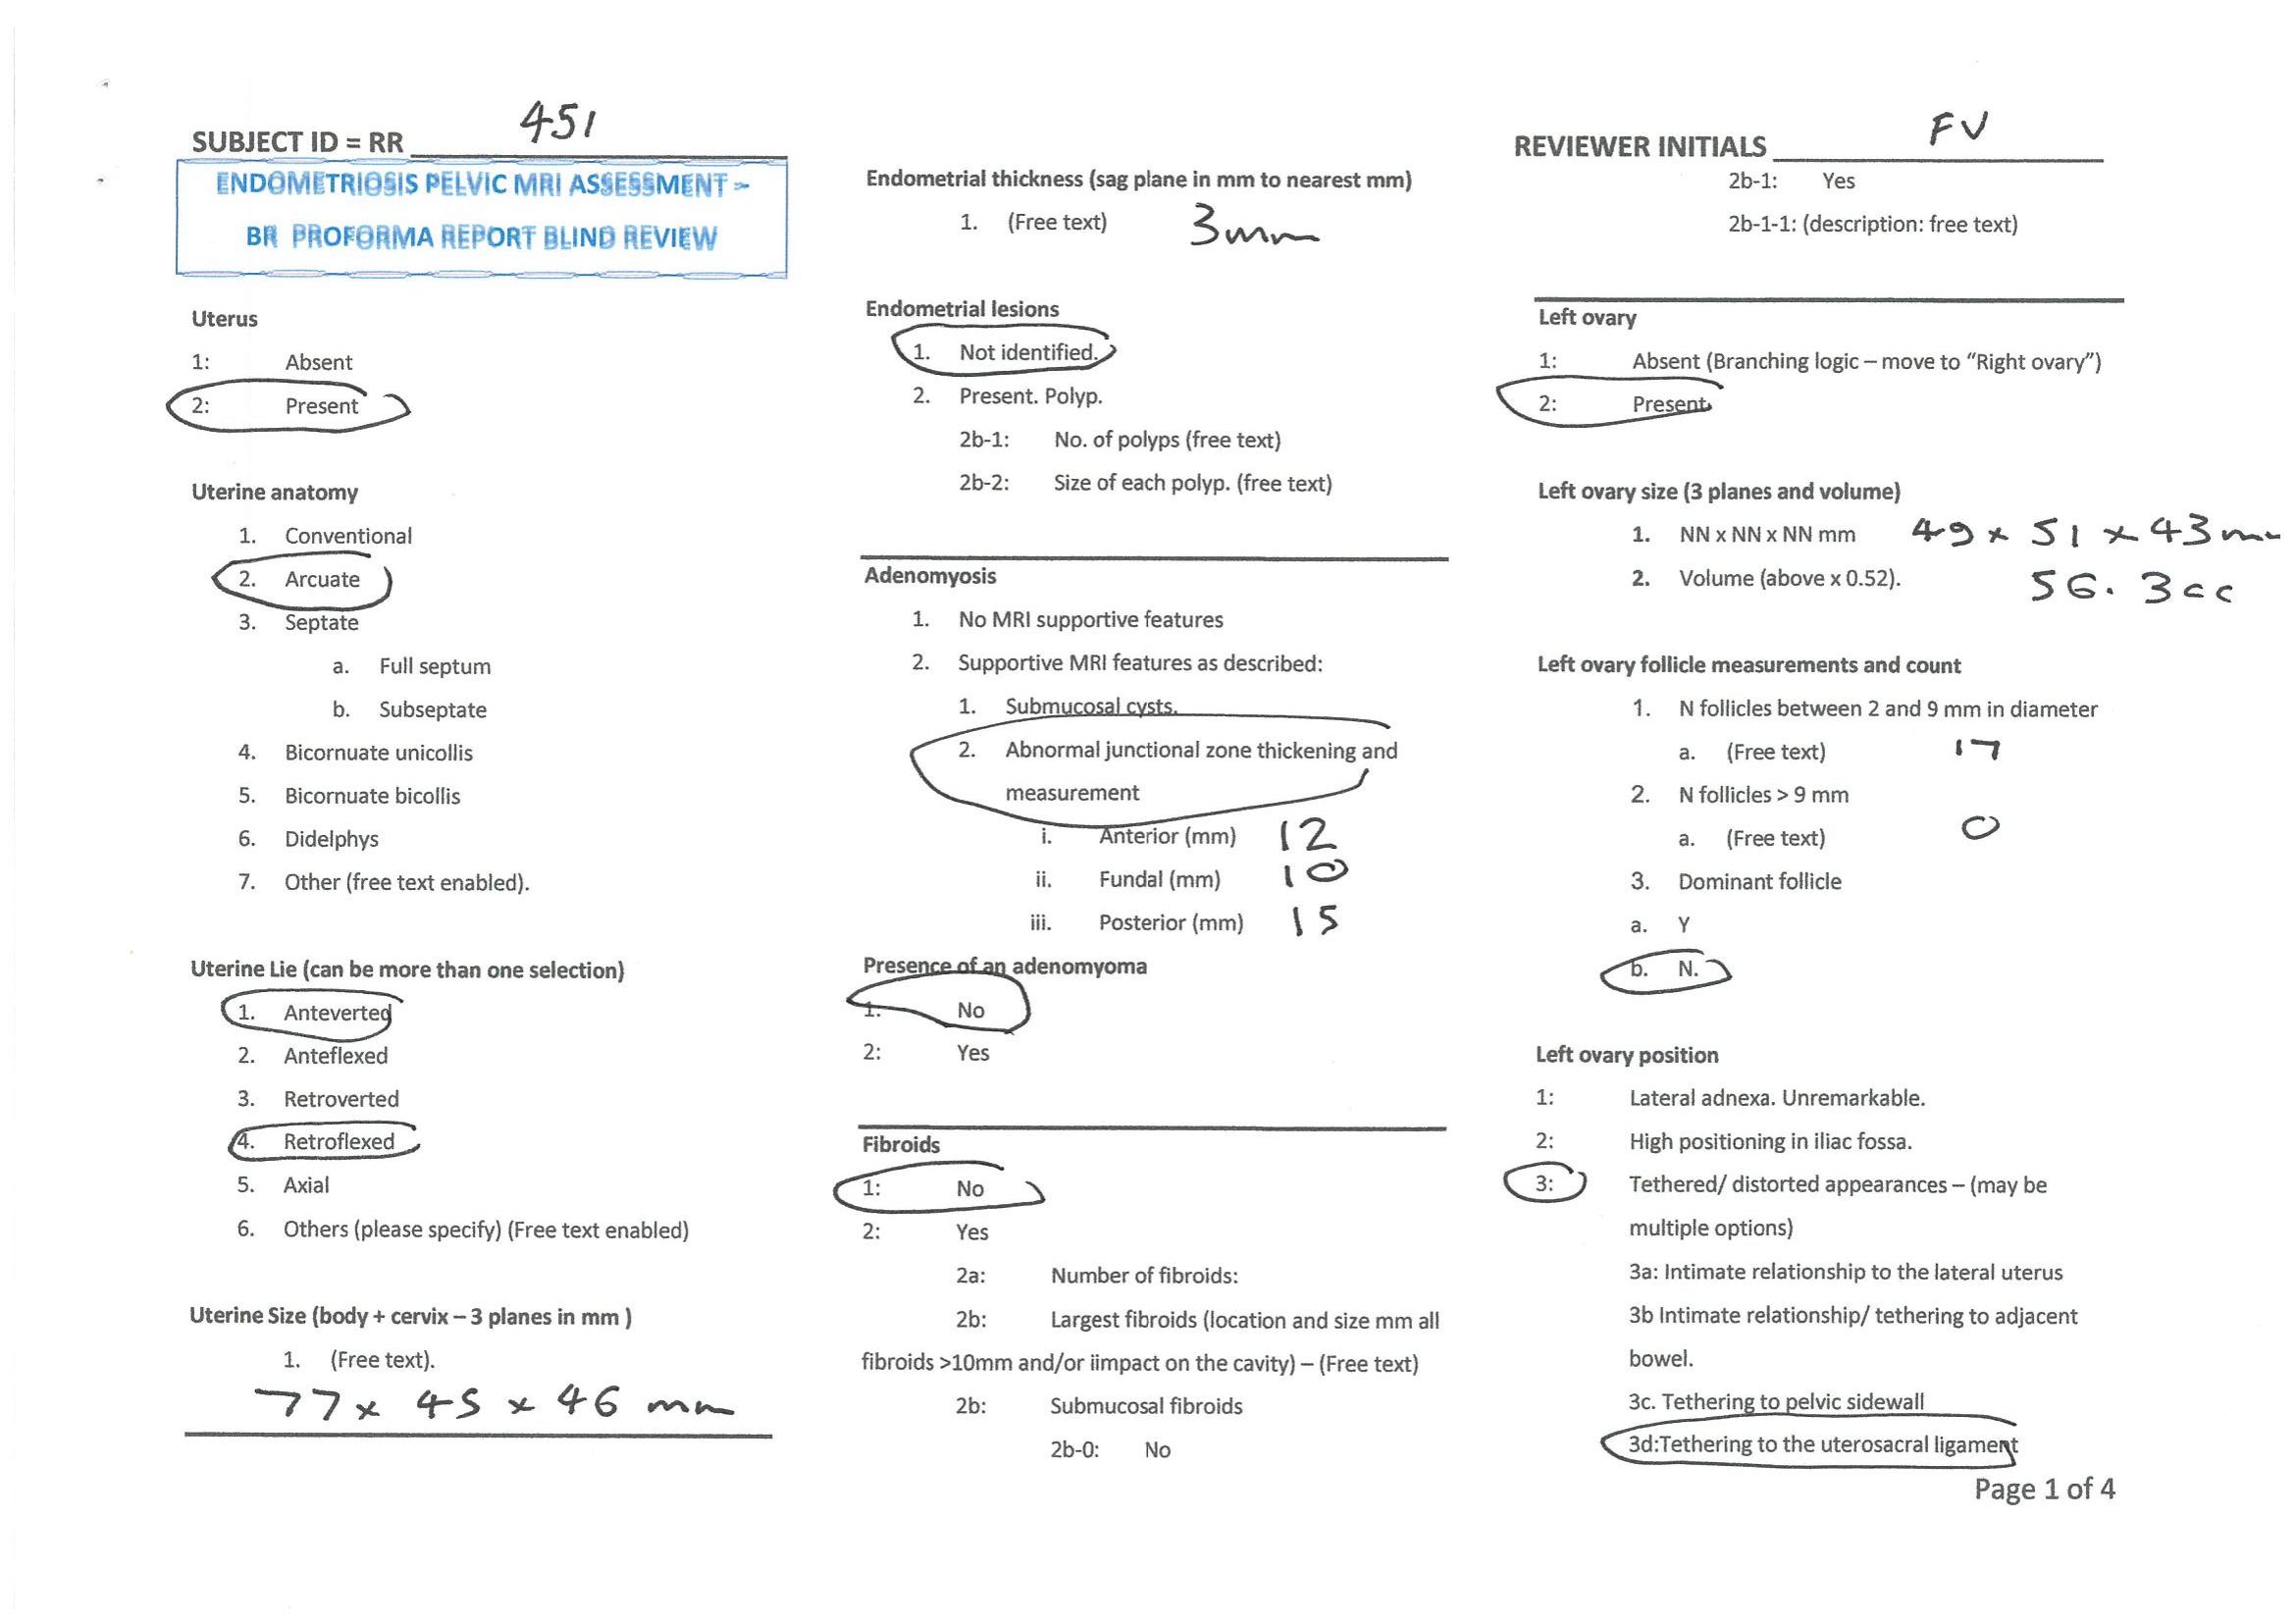 SUBJECT ID = RR 451
ENDOMETRIOSIS PELVIC MRI ASSESSMENT –
BR PROFORMA REPORT BLIND REVIEW
Uterus
1: Absent
2: Present
Uterine anatomy
1. Conventional
2. Arcuate
3. Septate
a. Full septum
b. Subseptate
4. Bicornuate unicollis
5. Bicornuate bicollis
6. Didelphys
7. Other (free text enabled).
Uterine Lie (can be more than one selection)
1. Anteverted
2. Anteflexed
3. Retroverted
4. Retroflexed
5. Axial
6. Others (please specify) (Free text enabled)
Uterine Size (body + cervix – 3 planes in mm )
1. (Free text).
77 x 45 x 46 mm
Endometrial thickness (sag plane in mm to nearest mm)
1. (Free text) 3mm
Endometrial lesions
1. Not identified.
2. Present. Polyp.
2b-1: No. of polyps (free text)
2b-2: Size of each polyp. (free text)
Adenomyosis
1. No MRI supportive features
2. Supportive MRI features as described:
1. Submucosal cysts.
2. Abnormal junctional zone thickening and
measurement
i. Anterior (mm) 12
ii. Fundal (mm) 10
iii. Posterior (mm) 15
Presence of an adenomyoma
1: No
2: Yes
Fibroids
1: No
2: Yes
2a: Number of fibroids:
2b: Largest fibroids (location and size mm all
fibroids >10mm and/or iimpact on the cavity) – (Free text)
2b: Submucosal fibroids
2b-0: No
REVIEWER INITIALS FV
2b-1: Yes
2b-1-1: (description: free text)
Left ovary
1: Absent (Branching logic – move to “Right ovary”)
2: Present
Left ovary size (3 planes and volume)
1. NN x NN x NN mm 49 x 51 x 43 mm
2. Volume (above x 0.52). 56.3cc
Left ovary follicle measurements and count
1. N follicles between 2 and 9 mm in diameter
a. (Free text) 17
2. N follicles > 9 mm
a. (Free text) 0
3. Dominant follicle
a. Y
b. N.
Left ovary position
1: Lateral adnexa. Unremarkable.
2: High positioning in iliac fossa.
3: Tethered/ distorted appearances – (may be
multiple options)
3a: Intimate relationship to the lateral uterus
3b Intimate relationship/ tethering to adjacent
bowel.
3c. Tethering to pelvic sidewall
3d:Tethering to the uterosacral ligament
Page 1 of 4